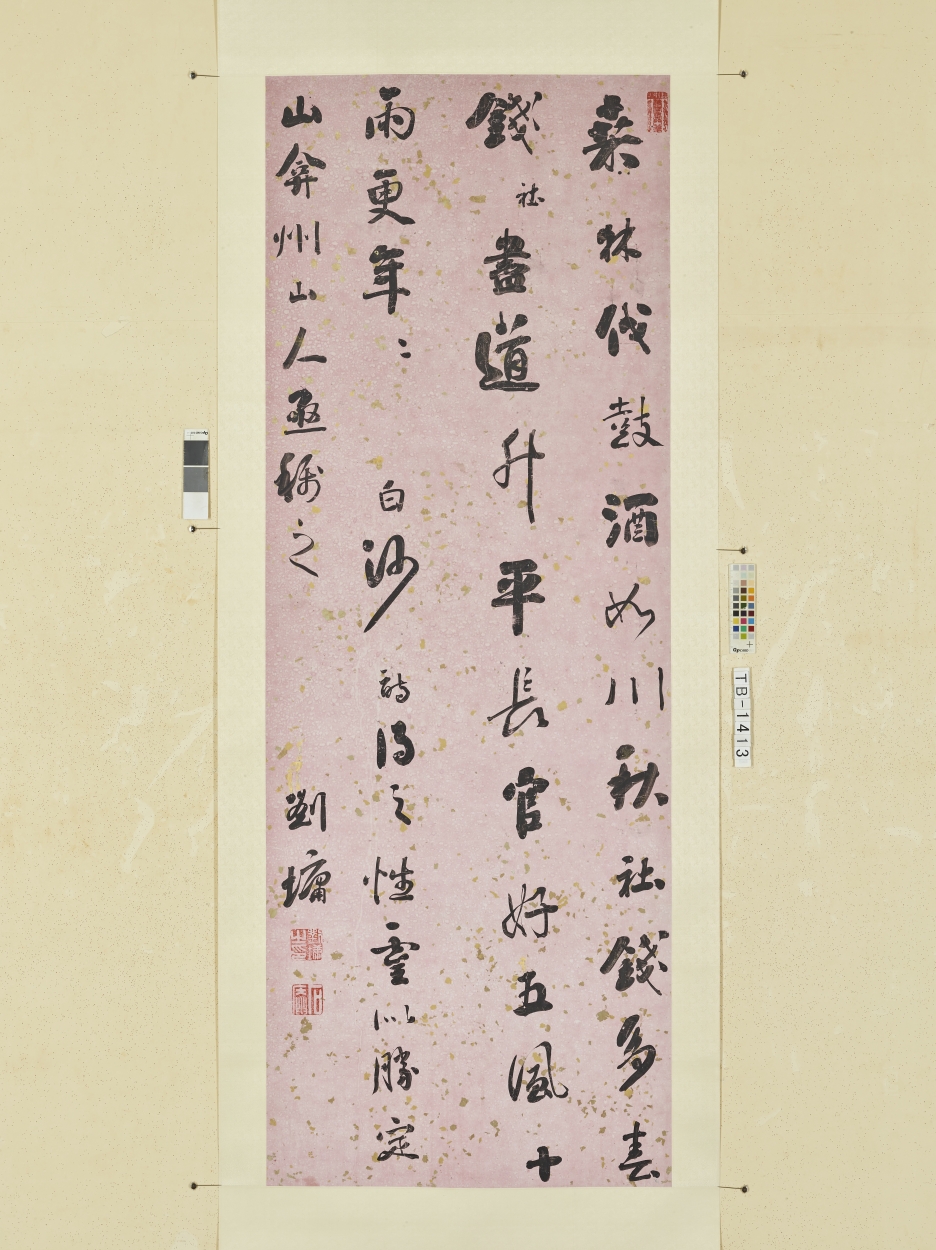 桑林伐鼓酒如川秋社錢多春
錢社盡道升平長官好五風十
雨更年〻白沙詩得之性靈以勝定
山弇州山人亟稱之
劉墉
TB-1413